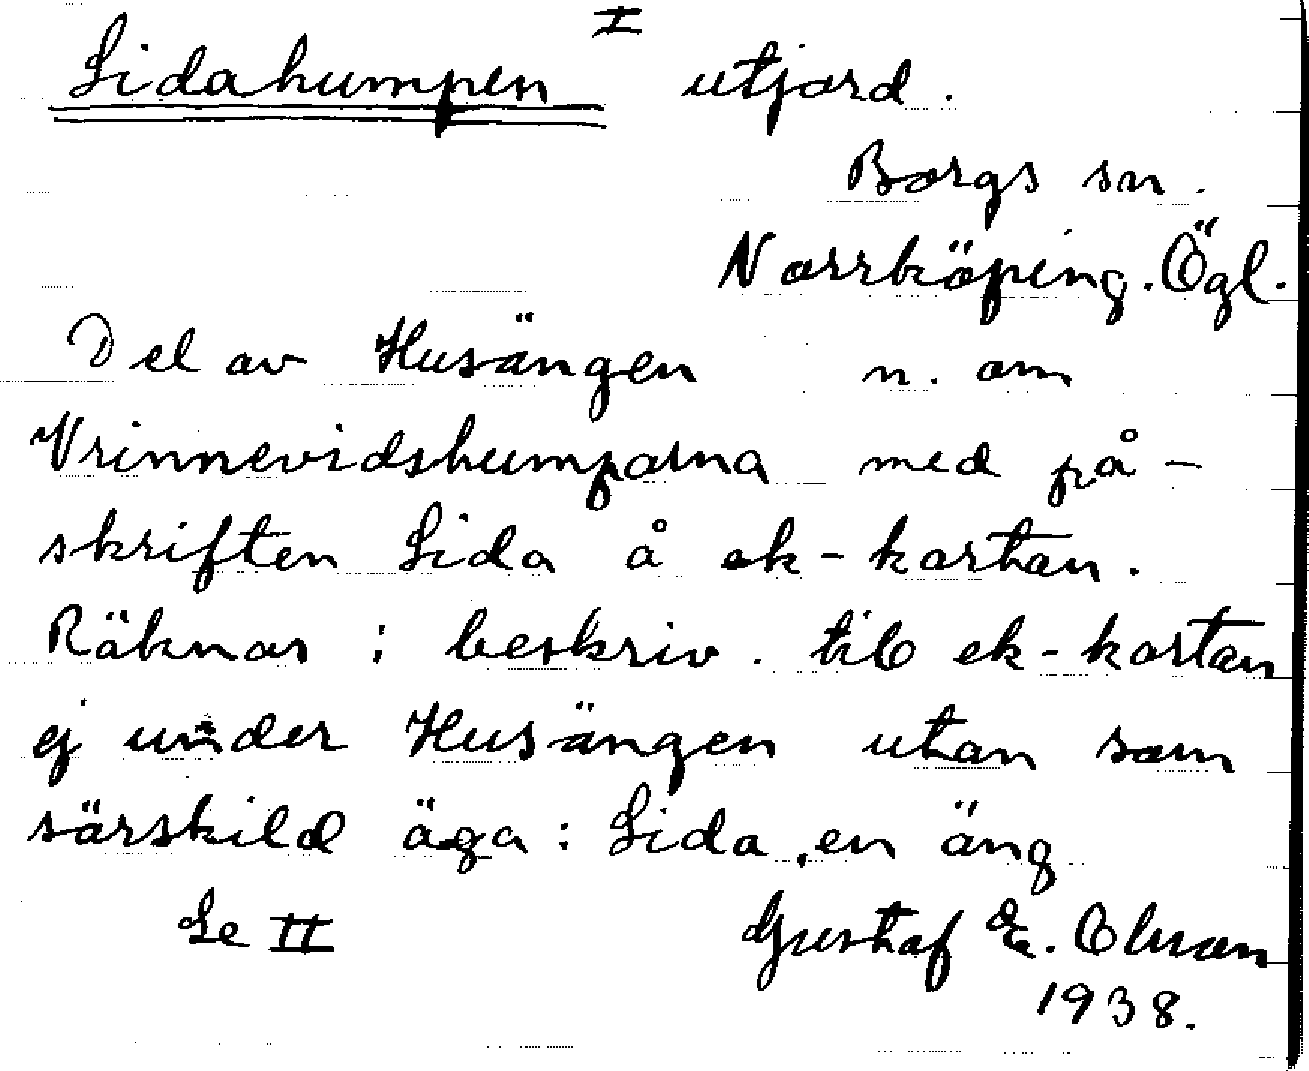 I
Lidahumpen utjord.
Borgs sn.
Norrköping. Ögl.
Del av Husängen n. om
Vrinnevidshumparna med på-
skriften Lida å ek-kartan.
Räknas i beskriv. till ek-kartan
ej under Husängen utan som
särskild äga: Lida, en äng
Se II Gustaf E. Olsson
1938.